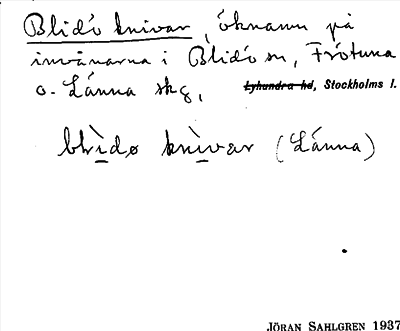 Blidö knivar, öknamn på
invånarna i Blidö sn, Frötuna
o. Länna skg, Lyhundra hd, Stockholms l.
blidø knivar (Länna)
JÖRAN SAHLGREN 1937